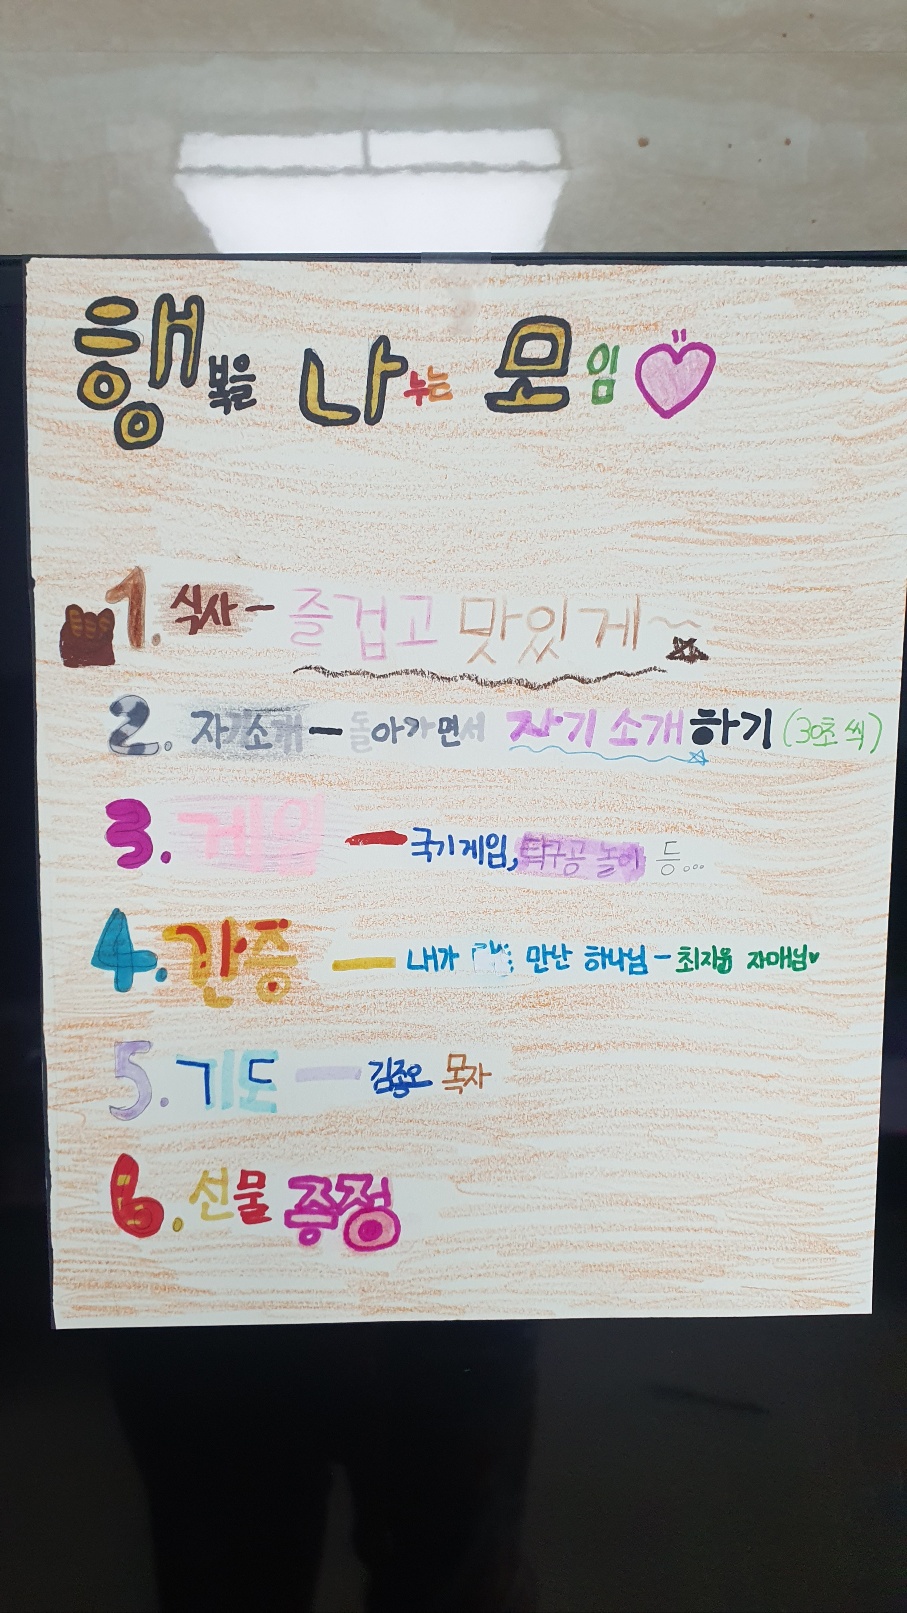 행복을 나누는 모임
1. 식사 - 즐겁고 맛있게~
2. 자기소개 - 돌아가면서 자기 소개하기 (30초 씩)
3. 게임 - 국기게임, 탁구공 놀이 등...
4. 간증 - 내가 만난 하나님 - 최지윤 자매님♥
5. 기도 - 김종오 목자
6. 선물 증정